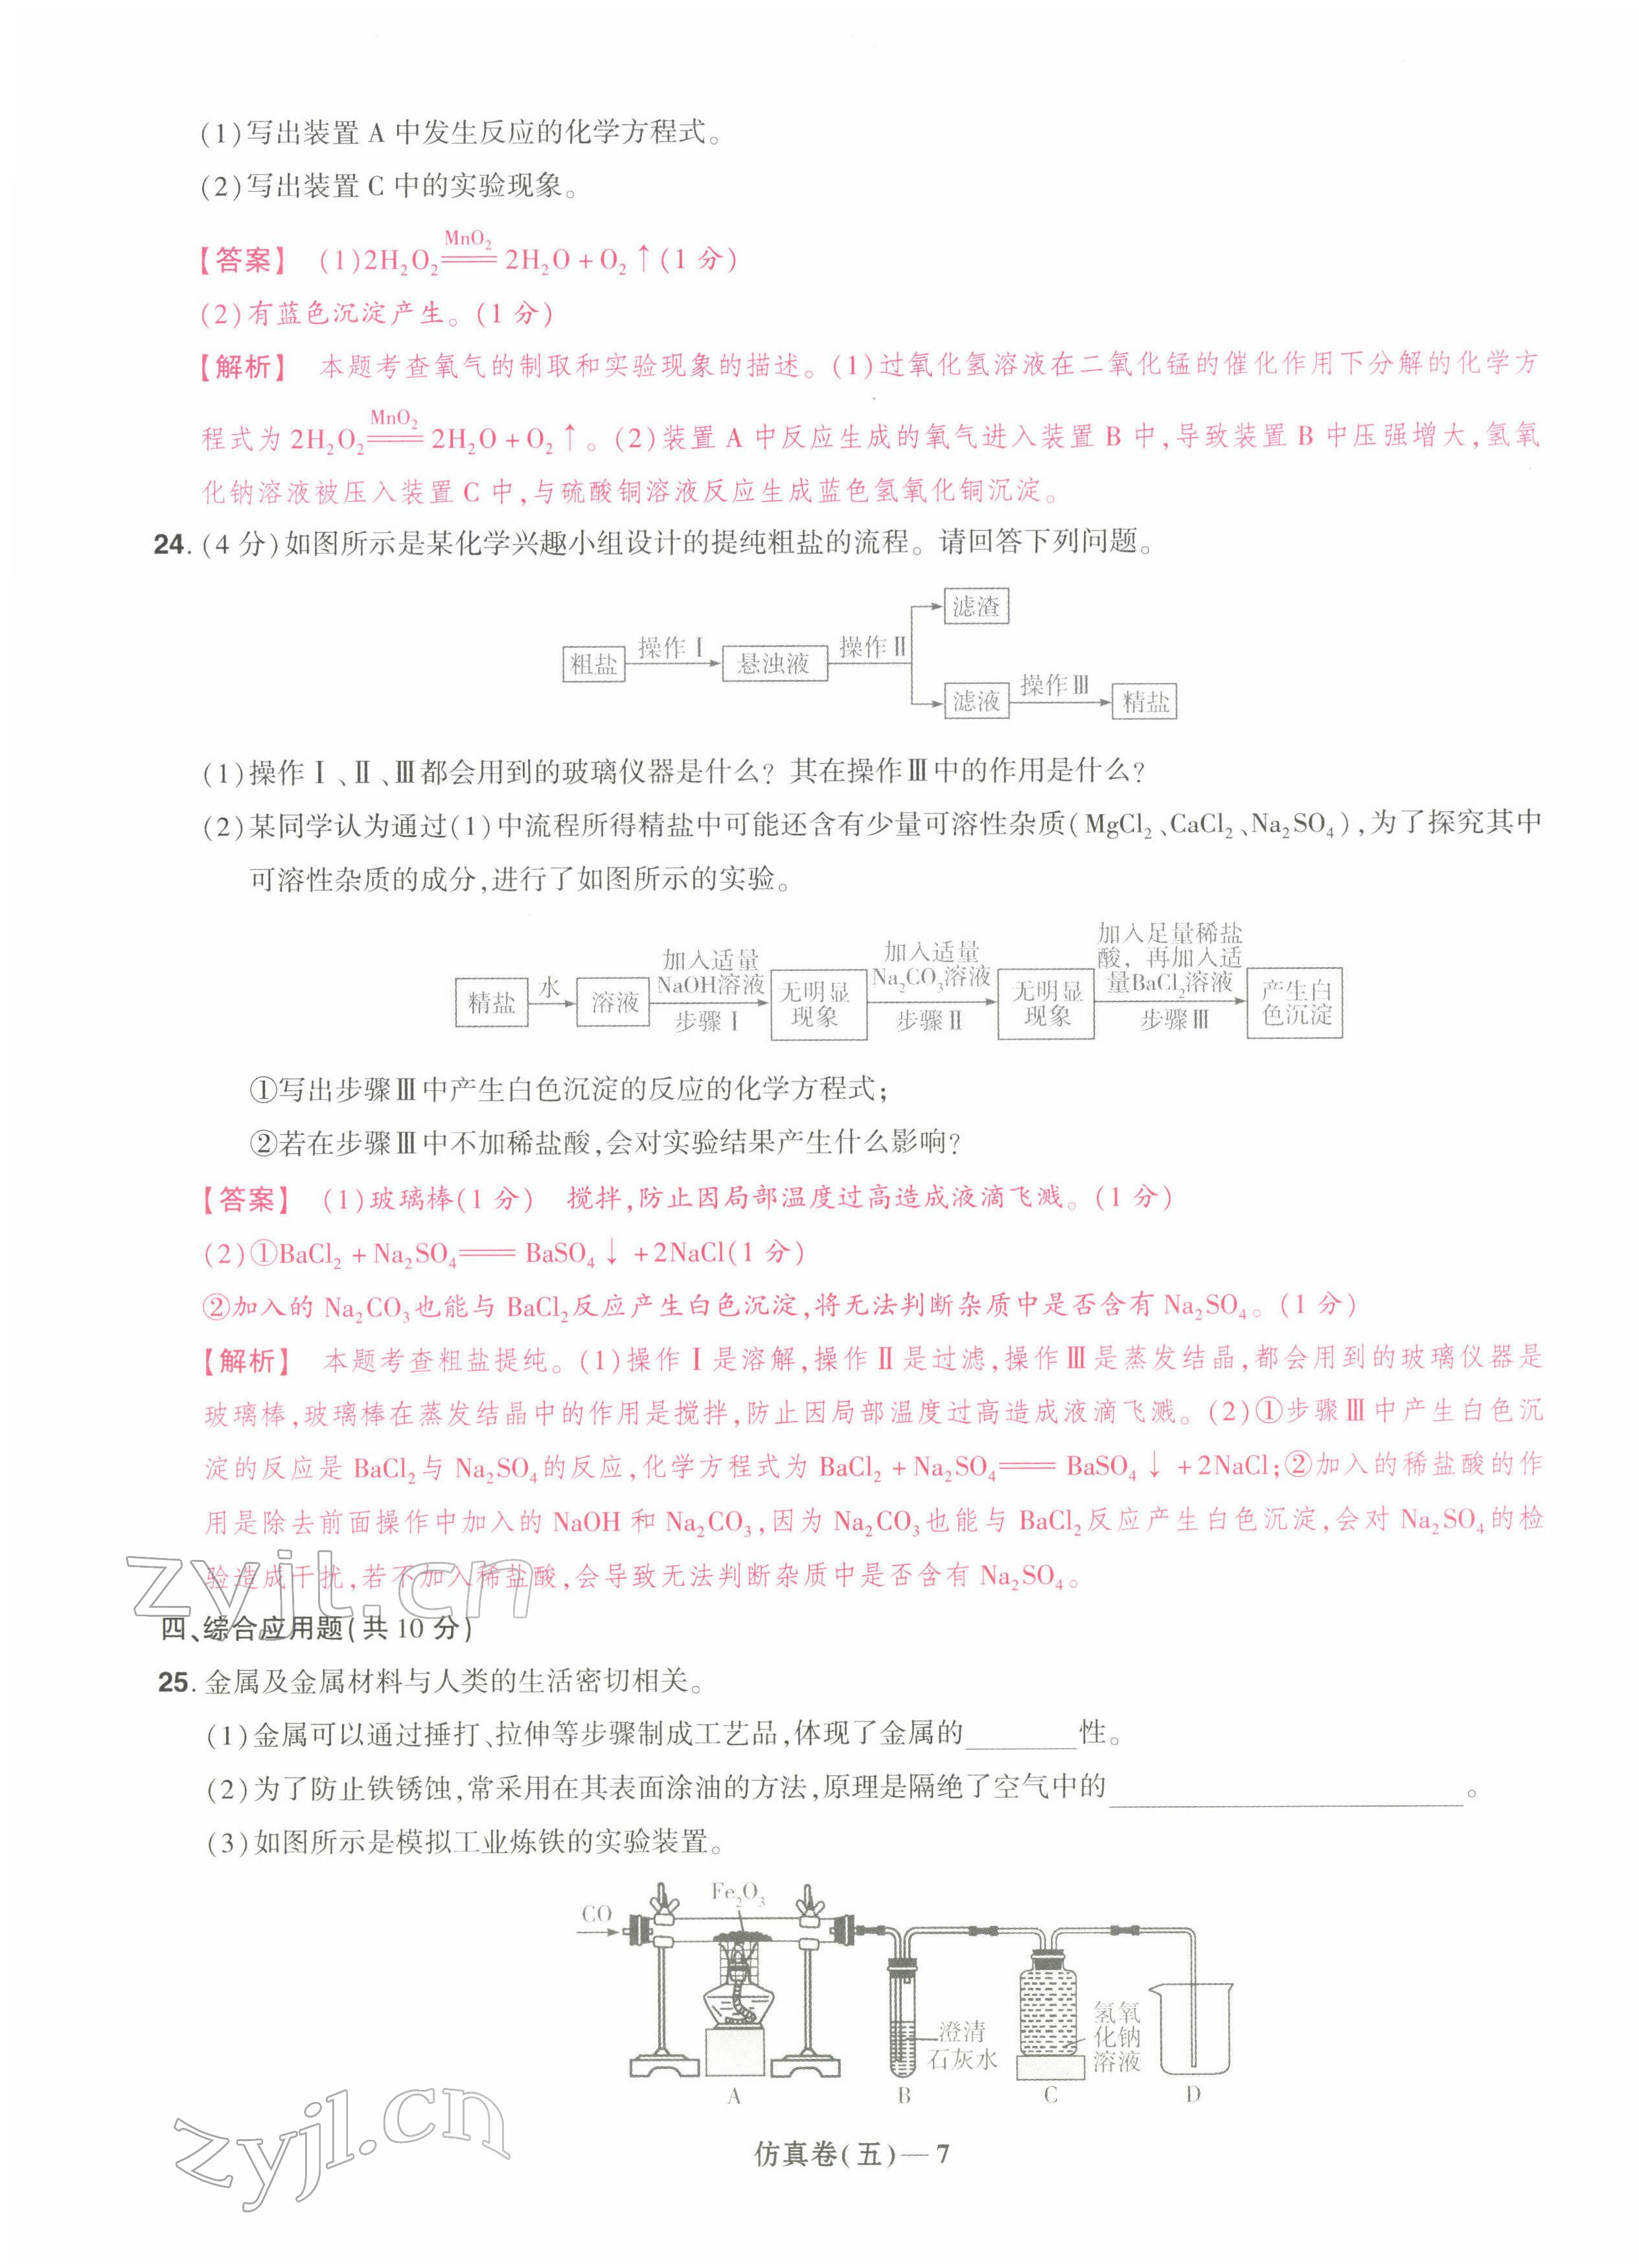 (1)写出装置 A 中发生反应的化学方程式。
(2)写出装置 C 中的实验现象。
【答案】 (1)2H₂O₂ =MnO₂= 2H₂O + O₂↑(1 分)
(2)有蓝色沉淀产生。(1 分)
【解析】 本题考查氧气的制取和实验现象的描述。(1)过氧化氢溶液在二氧化锰的催化作用下分解的化学方
程式为 2H₂O₂ =MnO₂= 2H₂O + O₂↑。(2)装置 A 中反应生成的氧气进入装置 B 中,导致装置 B 中压强增大,氢氧
化钠溶液被压入装置 C 中,与硫酸铜溶液反应生成蓝色氢氧化铜沉淀。
24. (4 分)如图所示是某化学兴趣小组设计的提纯粗盐的流程。请回答下列问题。
滤渣
粗盐 操作Ⅰ 悬浊液 操作Ⅱ
滤液 操作Ⅲ 精盐
(1)操作Ⅰ、Ⅱ、Ⅲ都会用到的玻璃仪器是什么? 其在操作Ⅲ中的作用是什么?
(2)某同学认为通过(1)中流程所得精盐中可能还含有少量可溶性杂质(MgCl₂、CaCl₂、Na₂SO₄),为了探究其中
可溶性杂质的成分,进行了如图所示的实验。
精盐 水 溶液
加入适量
NaOH溶液
步骤Ⅰ
无明显
现象
加入适量
Na₂CO₃溶液
步骤Ⅱ
无明显
现象
加入足量稀盐
酸，再加入适
量BaCl₂溶液
步骤Ⅲ
产生白
色沉淀
①写出步骤Ⅲ中产生白色沉淀的反应的化学方程式;
②若在步骤Ⅲ中不加稀盐酸,会对实验结果产生什么影响?
【答案】 (1)玻璃棒(1 分) 搅拌,防止因局部温度过高造成液滴飞溅。(1 分)
(2)①BaCl₂ + Na₂SO₄ == BaSO₄↓ + 2NaCl(1 分)
②加入的 Na₂CO₃也能与 BaCl₂反应产生白色沉淀,将无法判断杂质中是否含有 Na₂SO₄。(1 分)
【解析】 本题考查粗盐提纯。(1)操作Ⅰ是溶解,操作Ⅱ是过滤,操作Ⅲ是蒸发结晶,都会用到的玻璃仪器是
玻璃棒,玻璃棒在蒸发结晶中的作用是搅拌,防止因局部温度过高造成液滴飞溅。(2)①步骤Ⅲ中产生白色沉
淀的反应是 BaCl₂与 Na₂SO₄的反应,化学方程式为 BaCl₂ + Na₂SO₄ == BaSO₄↓ + 2NaCl;②加入的稀盐酸的作
用是除去前面操作中加入的 NaOH 和 Na₂CO₃,因为 Na₂CO₃也能与 BaCl₂反应产生白色沉淀,会对 Na₂SO₄的检
验造成干扰,若不加入稀盐酸,会导致无法判断杂质中是否含有 Na₂SO₄。
zyjl.cn
四、综合应用题(共 10 分)
25. 金属及金属材料与人类的生活密切相关。
(1)金属可以通过捶打、拉伸等步骤制成工艺品,体现了金属的________性。
(2)为了防止铁锈蚀,常采用在其表面涂油的方法,原理是隔绝了空气中的________________________。
(3)如图所示是模拟工业炼铁的实验装置。
CO
Fe₂O₃
澄清
石灰水
氢氧
化钠
溶液
A B C D
zyjl.cn
仿真卷(五)— 7